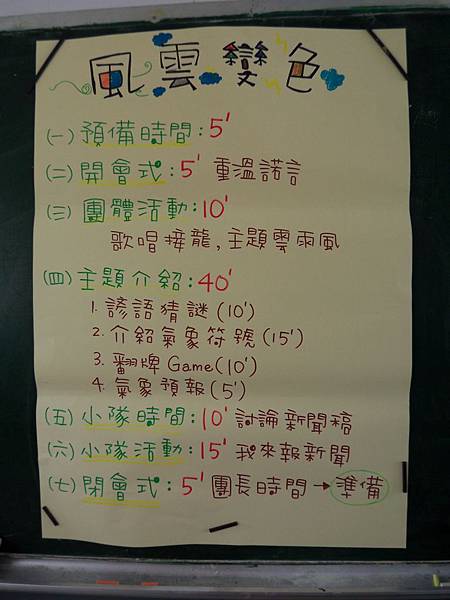 風雲變色
(一) 預備時間:5'
(二) 開會式:5' 重溫諾言
(三) 團體活動:10'
歌唱接龍,主題雲雨風
(四) 主題介紹:40'
1. 諺語猜謎(10')
2. 介紹氣象符號(15')
3. 翻牌Game(10')
4. 氣象預報(5')
(五) 小隊時間:10' 討論新聞稿
(六) 小隊活動:15' 我來報新聞
(七) 閉會式:5' 團長時間→準備